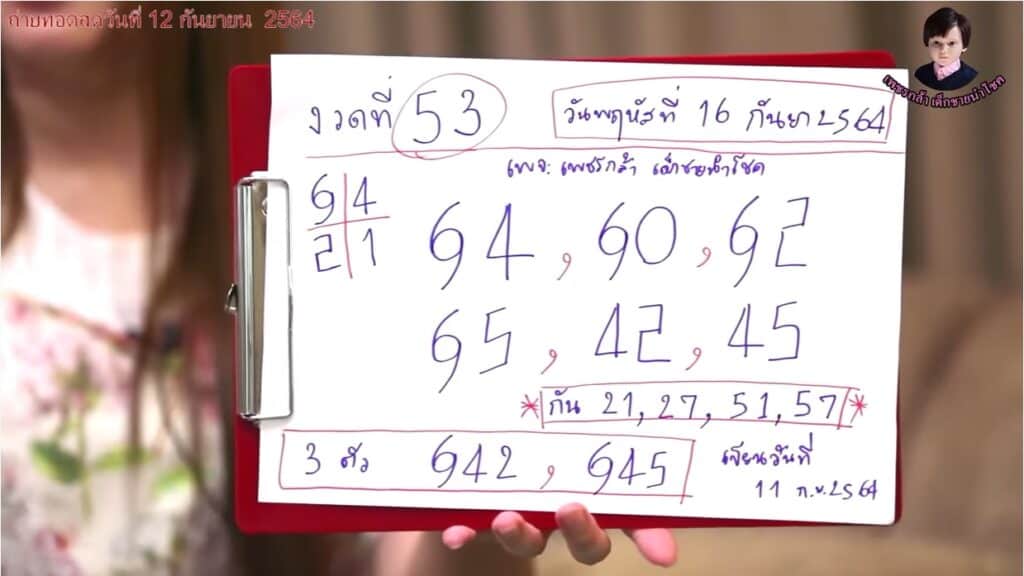 ถ่ายทอดสดวันที่ 12 กันยายน 2564
เพชรกล้า เด็กชายนำโชค
งวดที่ 53
วันพฤหัสที่ 16 กันยา 2564
เพจ: เพชรกล้า เด็กชายนำโชค
6 4
2 1
64, 60, 62
65, 42, 45
* กัน 21, 27, 51, 57 *
3 ตัว 642, 645
เขียนวันที่
11 ก.ย. 2564